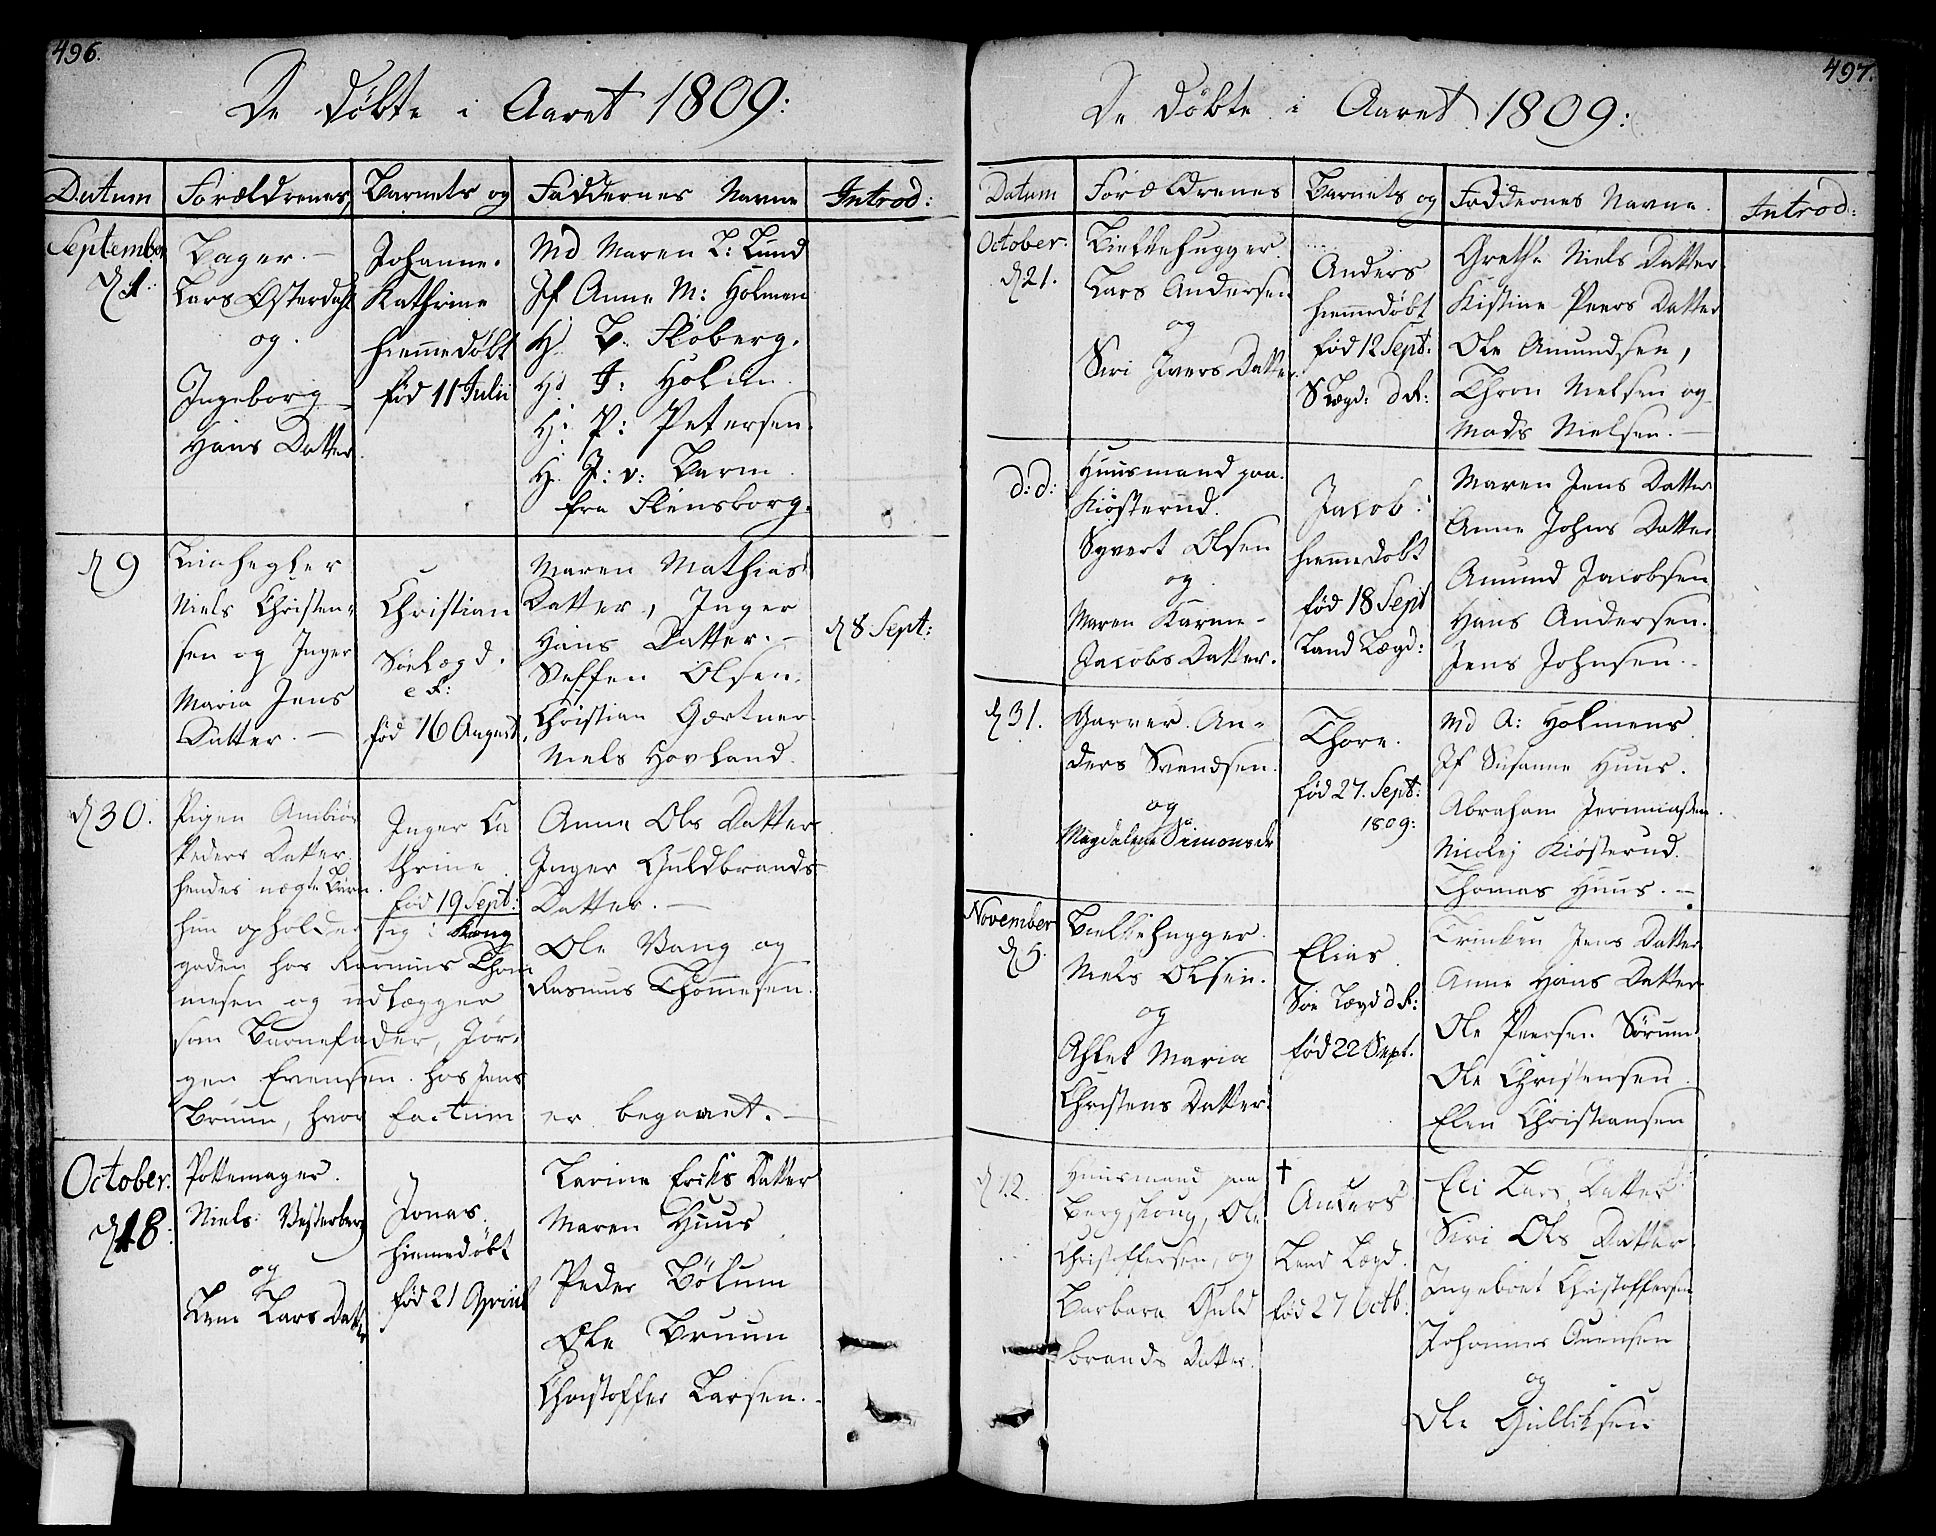 496.
De døbte i Aaret 1809:
Datum
Forældrenes,
Barnets og
Faddernes Navne
Introd:
September
d 1.
Bager. –
Lars Østerdahl
og.
Ingeborg
Hans Datter.
Johanne.
Kathrine
hiemmedøbt
fød 11 Julii
Md Maren L: Lund
Jf Anne M: Holmen
Hr B. Floberg.
Hr J: Holm
Hr P: Petersen.
Hr J: v: Barm
fra Flensborg.
d 9
Niels Christen-
sen og Inger
Maria Jens
Datter. –
Christian
Søe Lægd.
e F:
fød 16 August
Maren Mathias
Datter, Inger
Hans Datter. –
Steffen Olsen.
Christian Gartner.
Niels Hovland.
d 8 Sept:
d 30.
Pigen Ambiør
Peders Datter.
hendes uægte Barn.
hun opholder sig i Kong
gaden hos Rasmus Thom
mesen og udlægger
som Barnefader, Jør-
gen Evensen. hos Jens
Bruun, hvor factum er begaaet. –
Inger Ca
thrine.
fød 19 Sept:
Anne Ols Datter
Inger Guldbrands
Datter. –
Ole Vang og
Rasmus Thommesen.
October.
d 18:
Pottemager.
Niels Westerberg
og
Lene Lars Datter
Jonas.
hiemmedøbt
fød 21 Apriil
Karine Eriks Datter
Maren Huus
Peder Bølum
Ole Bruun
Christoffer Larsen.
497.
De døbte i Aaret 1809:
Datum
Forældrenes
Barnets og
Faddernes Navne.
Introd:
October.
d 21.
Bielkehugger.
Lars Andersen
og
Siri Ivers Datter.
Anders
hiemmedøbt
fød 12 Sept:
S Lægd: d F:
Grethe Niels Datter
Kistine Peers Datter
Ole Amundsen,
Thron Nielsen og
Mads Nielsen. –
d: d:
Huusmand paa
Kiøsterud.
Syvert Olsen
og
Maren Karine
Jacobs Datter.
Jacob:
hiemmedøbt
fød 18 Sept
Land Lægd:
Maren Jens Datter
Anne Johns Datter
Amund Jacobsen
Hans Andersen.
Jens Johnsen. –
d 31.
Garver. An-
ders Svendsen.
og
Magdalene Simonsdr
Thore.
fød 27. Sept:
1809:
Md A: Holmens
Jf Susanne Huus.
Abraham Jeremiassen
Nicolej Kiøsterud.
Thomas Huus. –
November
d 5.
Bielkehugger.
Niels Olsen.
og
Ahlet Maria
Christens Datter.
Elias.
Søe Lægd d F:
fød 22 Sept.
Trinken Jens Datter
Anne Hans Datter
Ole Peersen Sørum
Ole Christensen
Elen Christiansen
d 12.
Huusmand paa
Bergskoug, Ole
Christoffersen, og
Barbara Guld
brands Datter.
†
Anders
Land Lægd.
fød 27 Octb:
Eli Lars Datter
Siri Ols Datter
Ingebret Christoffersen
Johannes Evensen
og
Ole Gulliksen